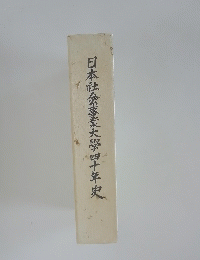 日本社會事業大學四十年史